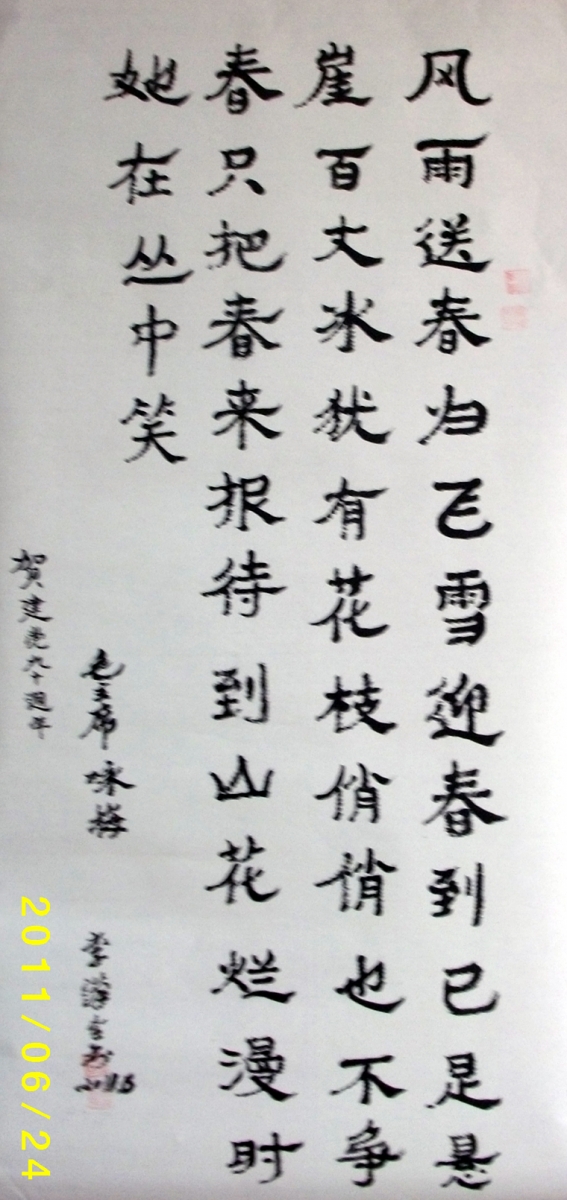 风雨送春归飞雪迎春到已是悬
崖百丈冰犹有花枝俏俏也不争
春只把春来报待到山花烂漫时
她在丛中笑
毛主席咏梅
贺建党九十週年
2011/06/24